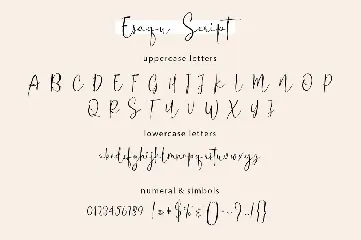 Esagu Script
uppercase letters
A B C D E F G H I J K L M N O P
Q R S T U V W X Y Z
lowercase letters
abcdefghijklmnopqrstuvwxyz
numeral & simbols
0123456789 ! @ # $ % & ( ) - ... ? . , / { }